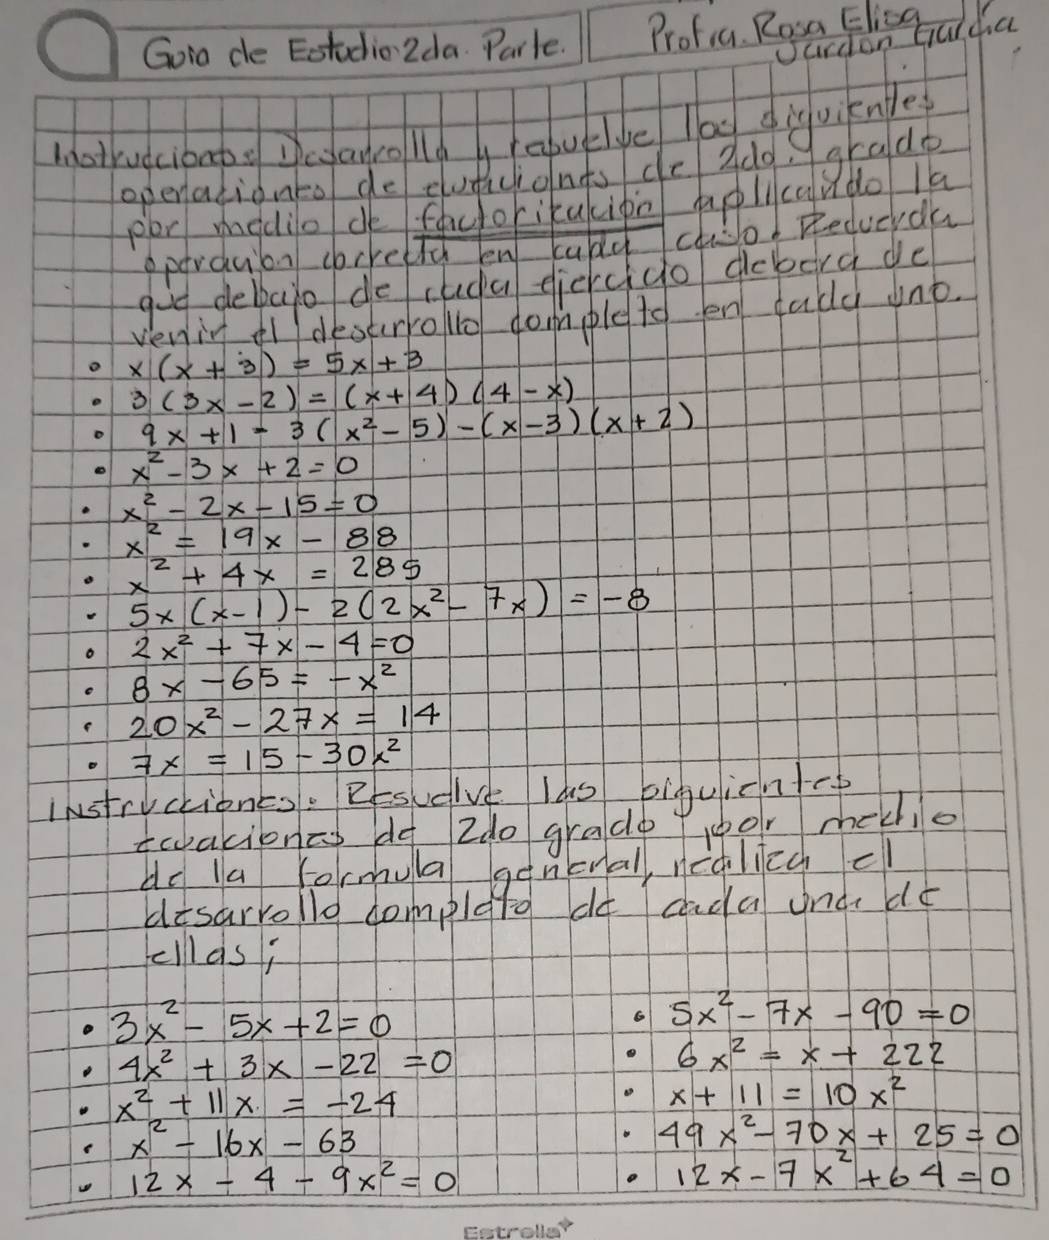 Guia de Estudio 2da. Parte. Profra. Rosa Elisa
Jardon Garcia
Instrucciones: Desarrolla y resuelve las siguientes
operaciones de ecuaciones de 2do. grado
por medio de factorización aplicando la
operación correcta en cada caso. Recuerda
que debajo de cada ejercicio deberá de
venir el desarrollo completo en cada uno.
• x(x + 3) = 5x + 3
• 3(3x - 2) = (x + 4)(4 - x)
• 9x + 1 = 3(x² - 5) - (x - 3)(x + 2)
• x² - 3x + 2 = 0
• x² - 2x - 15 = 0
• x² = 19x - 88
• x² + 4x = 285
• 5x(x - 1) - 2(2x² - 7x) = -8
• 2x² + 7x - 4 = 0
• 8x - 65 = -x²
• 20x² - 27x = 14
• 7x = 15 - 30x²
Instrucciones: Resuelve las siguientes
ecuaciones de 2do grado por medio
de la formula general, realiza el
desarrollo completo de cada una de
ellas;
• 3x² - 5x + 2 = 0
• 4x² + 3x - 22 = 0
• x² + 11x = -24
• x² - 16x - 63
• 12x - 4 - 9x² = 0
• 5x² - 7x - 90 = 0
• 6x² = x + 222
• x + 11 = 10x²
• 49x² - 70x + 25 = 0
• 12x - 7x² + 64 = 0
Estrella